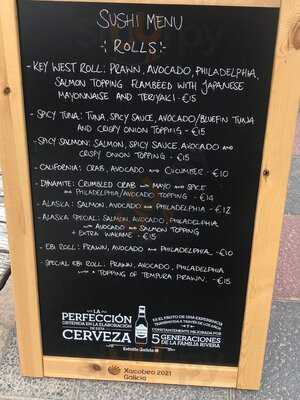 SUSHI MENU
-: ROLLS :-
- KEY WEST ROLL: PRAWN, AVOCADO, PHILADELPHIA,
SALMON TOPPING FLAMBEED WITH JAPANESE
MAYONNAISE AND TERIYAKI - €15
- SPICY TUNA: TUNA, SPICY SAUCE, AVOCADO/BLUEFIN TUNA
AND CRISPY ONION TOPPING - €15
- SPICY SALMON: SALMON, SPICY SAUCE, AVOCADO AND
CRISPY ONION TOPPING - €15
- CALIFORNIA: CRAB, AVOCADO AND CUCUMBER - €10
- DYNAMITE: CRUMBLED CRAB WITH MAYO AND SPICE
AND PHILADELPHIA/AVOCADO TOPPING - €14
- ALASKA: SALMON, AVOCADO AND PHILADELPHIA - €12
- ALASKA SPECIAL: SALMON, AVOCADO, PHILADELPHIA
WITH AVOCADO AND SALMON TOPPING
+ EXTRA WAKAME - €15
- EBI ROLL: PRAWN, AVOCADO AND PHILADELPHIA - €10
- SPECIAL EBI ROLL: PRAWN, AVOCADO, PHILADELPHIA
WITH A TOPPING OF TEMPURA PRAWN.
- €15
LA
PERFECCIÓN
OBTENIDA EN LA ELABORACIÓN
DE ESTA
CERVEZA
ES EL FRUTO DE UNA EXPERIENCIA
TRANSMITIDA A TRAVÉS DE LOS AÑOS
Y
CONSTANTEMENTE MEJORADA POR
5 GENERACIONES
DE LA FAMILIA RIVERA
Estrella Galicia
Xacobeo 2021
Galicia